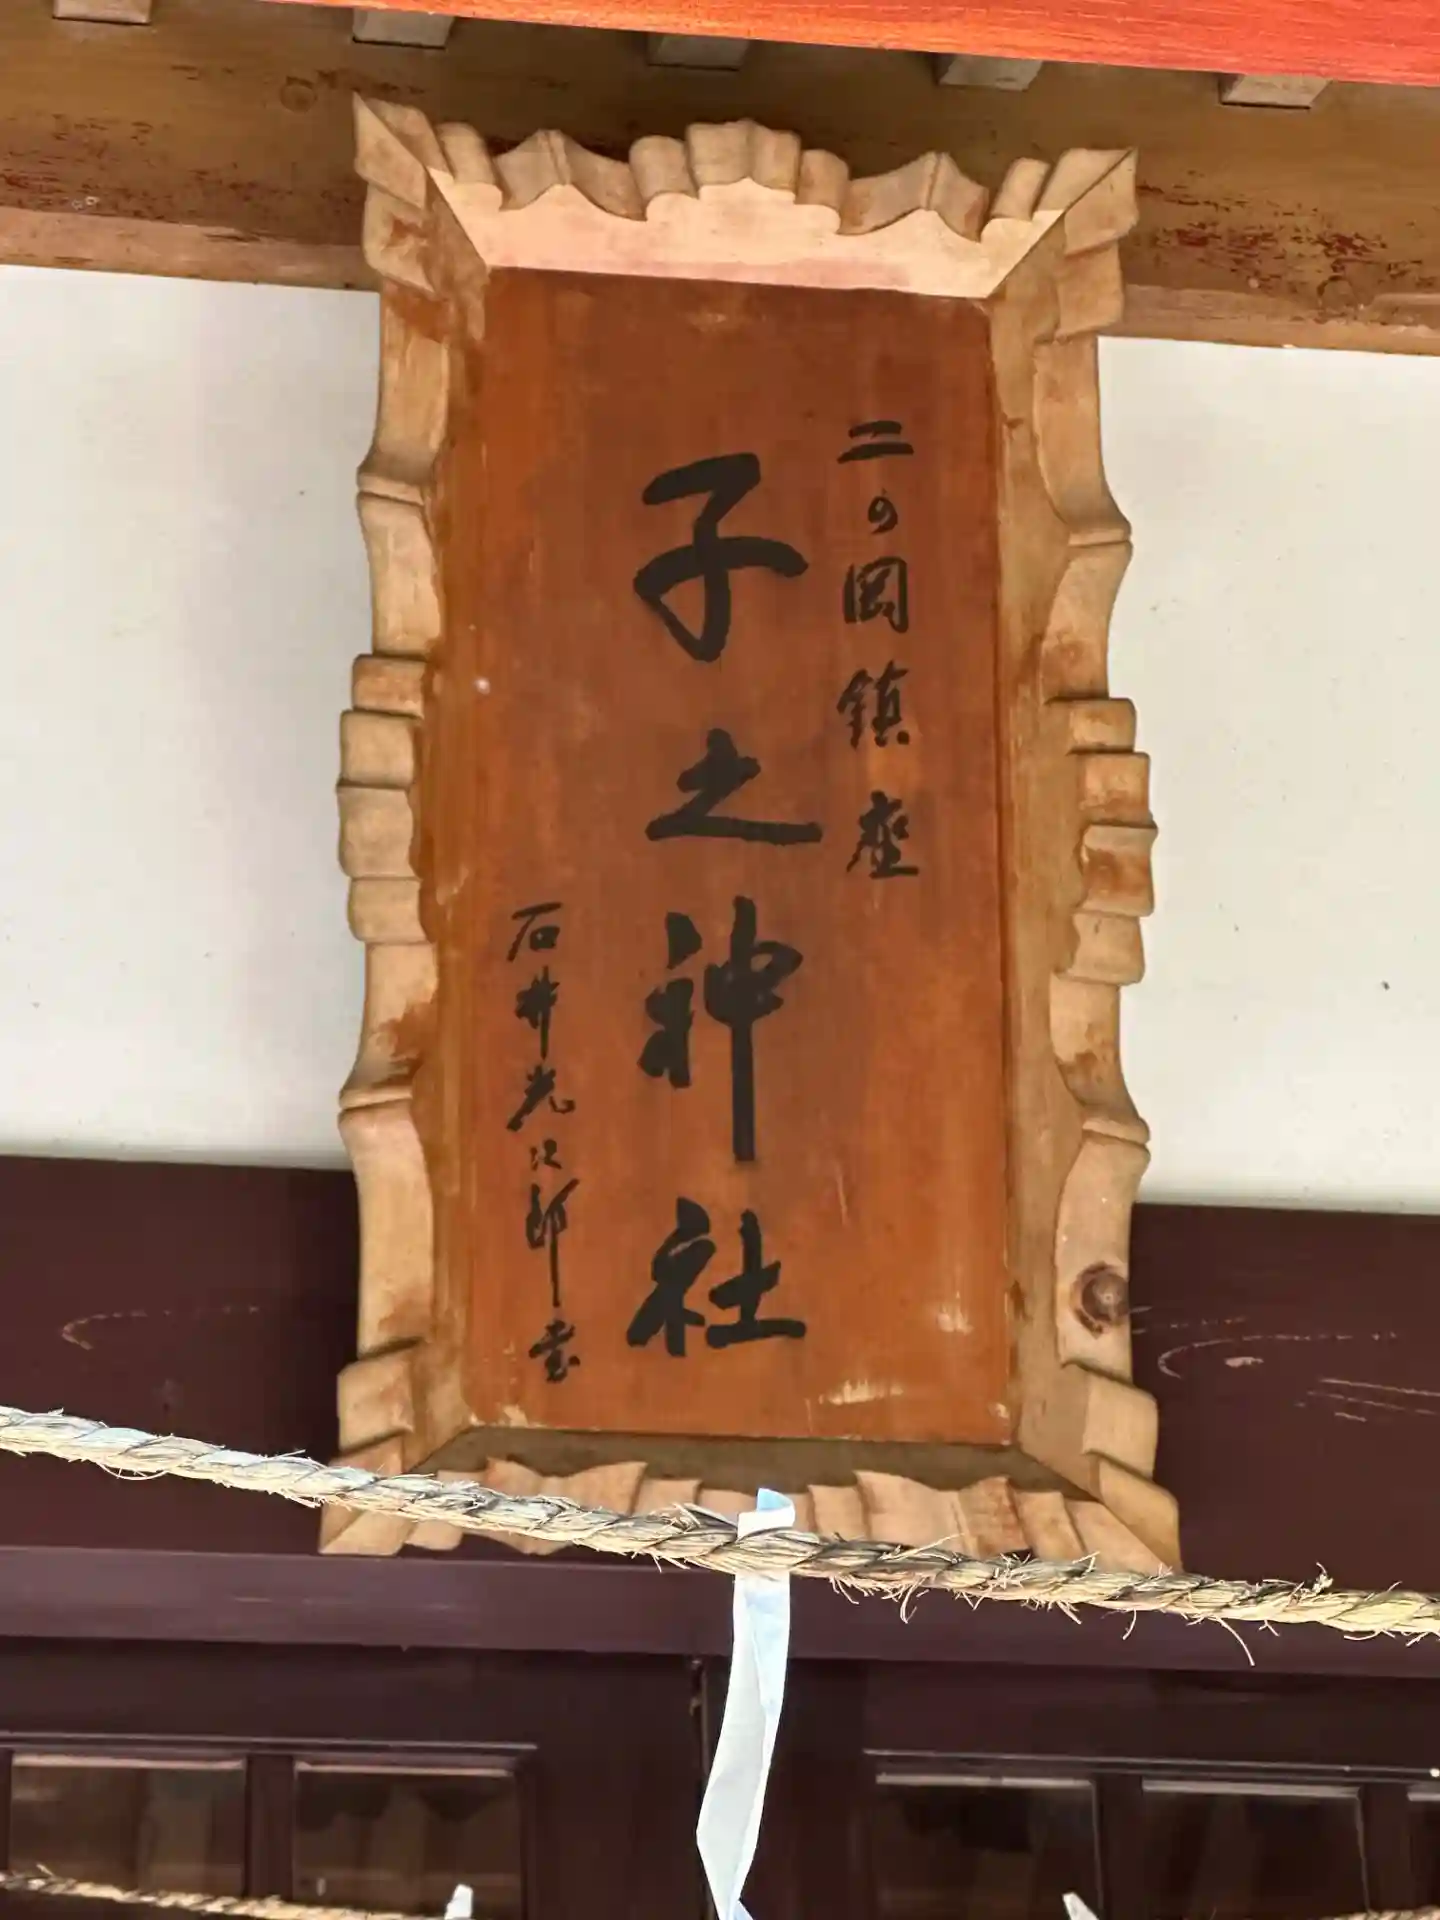 二の岡鎮座
子之神社
石井光次郎書